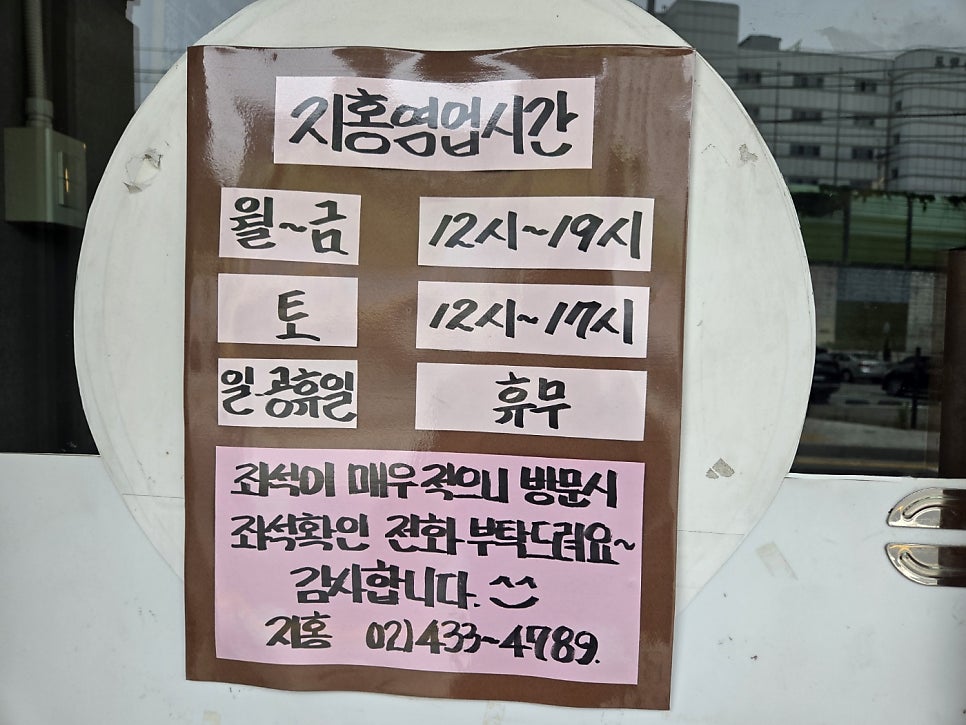 지홍영업시간
월~금 12시~19시
토 12시~17시
일.공휴일 휴무
좌석이 매우 적으니 방문시
좌석확인 전화 부탁드려요~
감사합니다. ^^
지홍 02)433-4789.